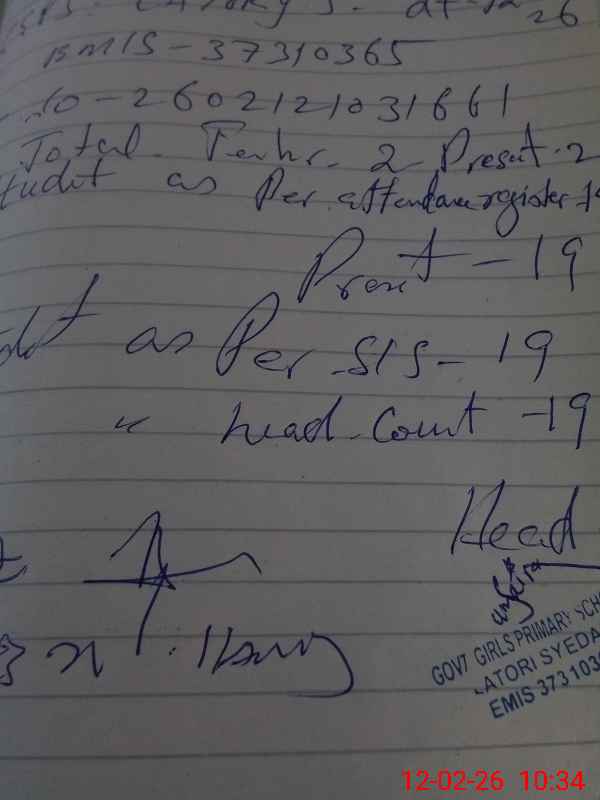 EMIS - 37310365
- 2602121031661
Total Teahr. 2 Present. 2
as Per attendance register
Present - 19
as Per SIS - 19
" head Count - 19
Head
GOVT GIRLS PRIMARY SCH
LATORI SYEDA
EMIS 373103
12-02-26 10:34